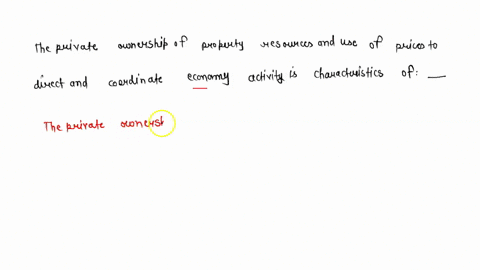 The private ownership of property resources and use of prices to
direct and coordinate economy activity is characteristics of: __
The private ownersh